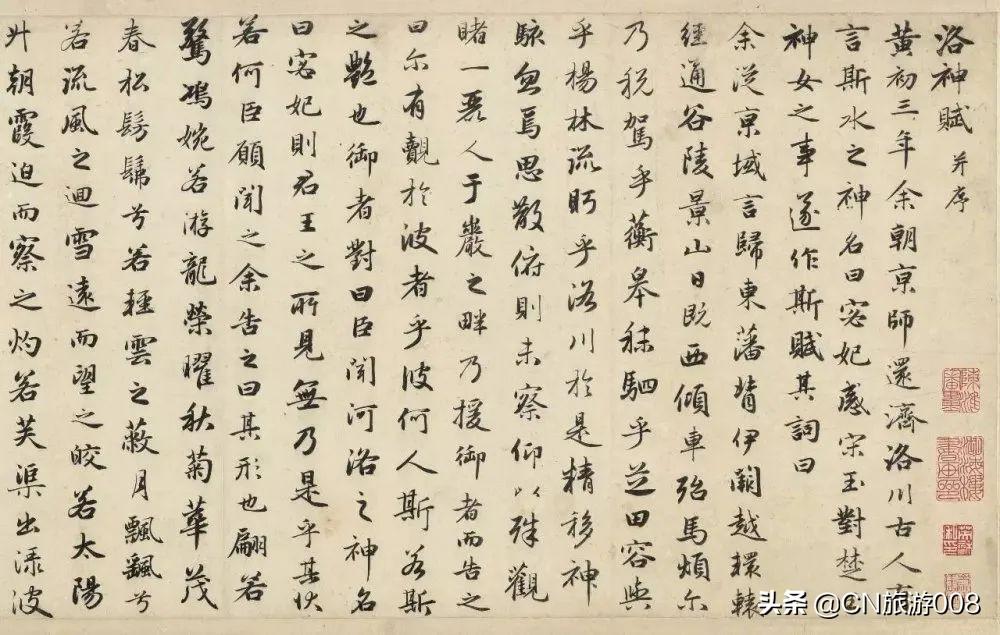 洛神賦 并序
黃初三年余朝京師還濟洛川古人有
言斯水之神名曰宓妃感宋玉對楚王
神女之事遂作斯賦其詞曰
余從京域言歸東藩背伊闕越轘轅
經通谷陵景山日既西傾車殆馬煩尔
乃稅駕乎蘅皋秣駟乎芝田容與
乎楊林流眄乎洛川於是精移神
駭忽焉思散俯則未察仰以殊觀
睹一麗人于巖之畔乃援御者而告之
曰尔有覿於彼者乎彼何人斯若斯
之艷也御者對曰臣聞河洛之神名
曰宓妃則君王之所見無乃是乎其状
若何臣願聞之余告之曰其形也翩若
驚鴻婉若游龍榮曜秋菊華茂
春松髣髴兮若輕雲之蔽月飄颻兮
若流風之迴雪遠而望之皎若太陽
升朝霞迫而察之灼若芙渠出淥波
头条 @CN旅游008